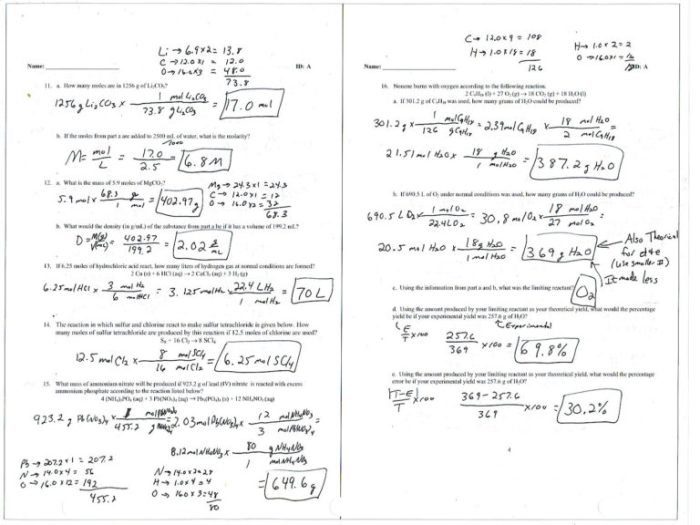 Li → 6.9x2 = 13.8
C → 12.0x1 = 12.0
O → 16.0x3 = 48.0
73.8
Name:
ID: A
11. a. How many moles are in 1256 g of Li₂CO₃?
1256g Li₂CO₃ x 1 mol Li₂CO₃ / 73.8 g Li₂CO₃ = 17.0 mol
b. If the moles from part a are added to 2500 mL of water, what is the molarity?
M = mol / L = 17.0 / 2.5 = 6.8 M
12. a. What is the mass of 5.9 moles of MgCO₃?
5.9 mol x 68.3 g / 1 mol = 402.97g
Mg → 24.3x1 = 24.3
C → 12.0x1 = 12
O → 16.0x2 = 32
68.3
b. What would the density (in g/mL) of the substance from part a be if it has a volume of 199.2 mL?
D = M(g) / V(mL) = 402.97 / 199.2 = 2.02 g / mL
13. If 6.25 moles of hydrochloric acid react, how many liters of hydrogen gas at normal conditions are formed?
6.25 mol HCl x 3 mol H₂ / 6 mol HCl = 3.125 mol H₂ x 22.4 L H₂ / 1 mol H₂ = 70 L
14. The reaction in which sulfur and chlorine react to make sulfur tetrachloride is given below. How
many moles of sulfur tetrachloride are produced by this reaction if 12.5 moles of chlorine are used?
S₈ + 16 Cl₂ → 8 SCl₄
12.5 mol Cl₂ x 8 mol SCl₄ / 16 mol Cl₂ = 6.25 mol SCl₄
15. What mass of ammonium nitrate will be produced if 923.2 g of lead (IV) nitrate is reacted with excess
ammonium phosphate according to the reaction listed below?
4 (NH₄)₃PO₄ (aq) + 3 Pb(NO₃)₄ (aq) → Pb₃(PO₄)₄ (s) + 12 NH₄NO₃ (aq)
923.2 g Pb(NO₃)₄ x
455.2
2.03 mol Pb(NO₃)₄ x 12 mol NH₄NO₃ / 3 mol Pb(NO₃)₄ =
8.12 mol NH₄NO₃ x 80 g NH₄NO₃ / 1 mol NH₄NO₃
= 649.6 g
Pb → 207.2x1 = 207.2
N → 14.0x4 = 56
O → 16.0x12 = 192
455.2
N → 14.0x2 = 28
H → 1.0x4 = 4
O → 16.0x3 = 48
80
C → 12.0x9 = 108
H → 1.0x18 = 18
126
H → 1.0x2 = 2
Name:
ID: A
16. Nonene burns with oxygen according to the following reaction.
2 C₉H₁₈ (l) + 27 O₂ (g) → 18 CO₂ (g) + 18 H₂O (l)
a. If 301.2 g of C₉H₁₈ was used, how many grams of H₂O could be produced?
301.2 g x 1 mol C₉H₁₈ / 126 g C₉H₁₈ = 2.39 mol C₉H₁₈ x 18 mol H₂O / 2 mol C₉H₁₈
21.51 mol H₂O x 18 g H₂O / 1 mol H₂O = 387.2 g H₂O
b. If 690.5 L of O₂ under normal conditions was used, how many grams of H₂O could be produced?
690.5 L O₂ x 1 mol O₂ / 22.4 L O₂ = 30.8 mol O₂ x 18 mol H₂O / 27 mol O₂ =
20.5 mol H₂O x 18 g H₂O / 1 mol H₂O = 369 g H₂O
Also Theorical
for d+e
(use smaller #)
It made less
c. Using the information from part a and b, what was the limiting reactant?
O₂
d. Using the amount produced by your limiting reactant as your theoretical yield, what would the percentage
yield be if your experimental yield was 257.6 g of H₂O?
Experimental
E / T x100 257.6 / 369 x100 = 69.8%
e. Using the amount produced by your limiting reactant as your theoretical yield, what would the percentage
error be if your experimental yield was 257.6 g of H₂O?
|T-E| / T x100 369-257.6 / 369 x100 = 30.2%
4